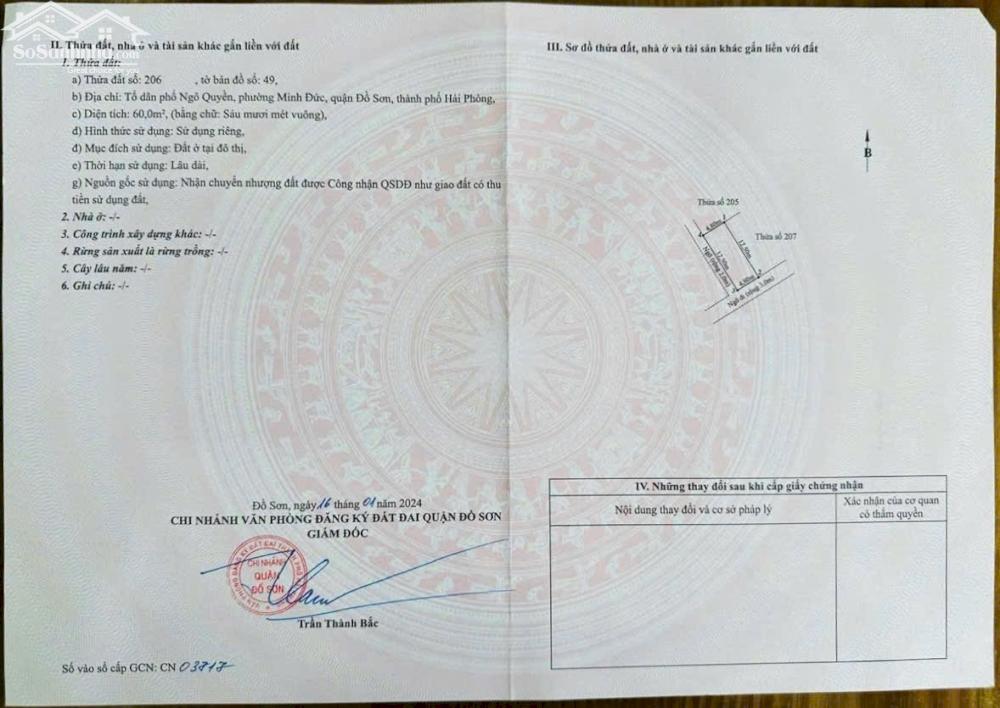 SoSanhnha.com
II. Thửa đất, nhà ở và tài sản khác gắn liền với đất
1. Thửa đất:
a) Thửa đất số: 206 , tờ bản đồ số: 49,
b) Địa chỉ: Tổ dân phố Ngô Quyền, phường Minh Đức, quận Đồ Sơn, thành phố Hải Phòng,
c) Diện tích: 60,0m², (bằng chữ: Sáu mươi mét vuông),
d) Hình thức sử dụng: Sử dụng riêng,
đ) Mục đích sử dụng: Đất ở tại đô thị,
e) Thời hạn sử dụng: Lâu dài,
g) Nguồn gốc sử dụng: Nhận chuyển nhượng đất được Công nhận QSDĐ như giao đất có thu
tiền sử dụng đất,
2. Nhà ở: -/-
3. Công trình xây dựng khác: -/-
4. Rừng sản xuất là rừng trồng: -/-
5. Cây lâu năm: -/-
6. Ghi chú: -/-
Đồ Sơn, ngày 16 tháng 01 năm 2024
CHI NHÁNH VĂN PHÒNG ĐĂNG KÝ ĐẤT ĐAI QUẬN ĐỒ SƠN
GIÁM ĐỐC
CHI NHÁNH
QUẬN
ĐỒ SƠN
Trần Thành Bắc
Số vào sổ cấp GCN: CN 03717
III. Sơ đồ thửa đất, nhà ở và tài sản khác gắn liền với đất
B
Thửa số 205
Thửa số 207
4.80m
12.50m
12.50m
4.80m
Ngõ (rộng 2.0m)
Ngõ đi (rộng 3.0m)
IV. Những thay đổi sau khi cấp giấy chứng nhận
Nội dung thay đổi và cơ sở pháp lý
Xác nhận của cơ quan
có thẩm quyền